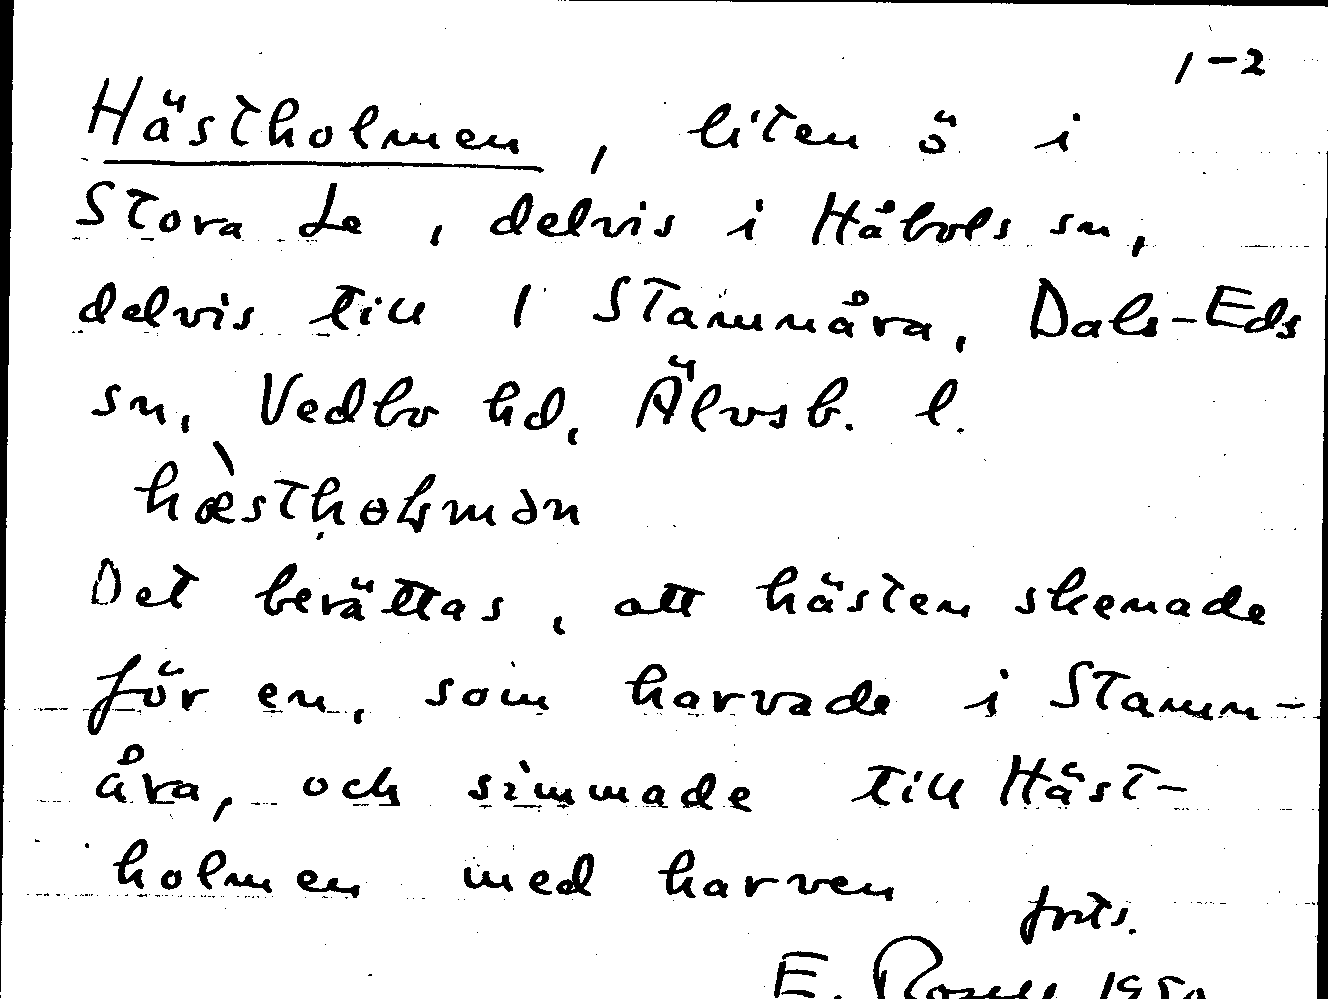 1-2
Hästholmen, liten ö i
Stora Le, delvis i Håbols sn,
delvis till 1 Stammåra, Dals-Eds
sn, Vedbo hd, Älvsb. l.
hæ̀stḥoɫmən
Det berättas, att hästen skenade
för en, som harvade i Stamm-
åra, och simmade till Häst-
holmen med harven
forts.
E.